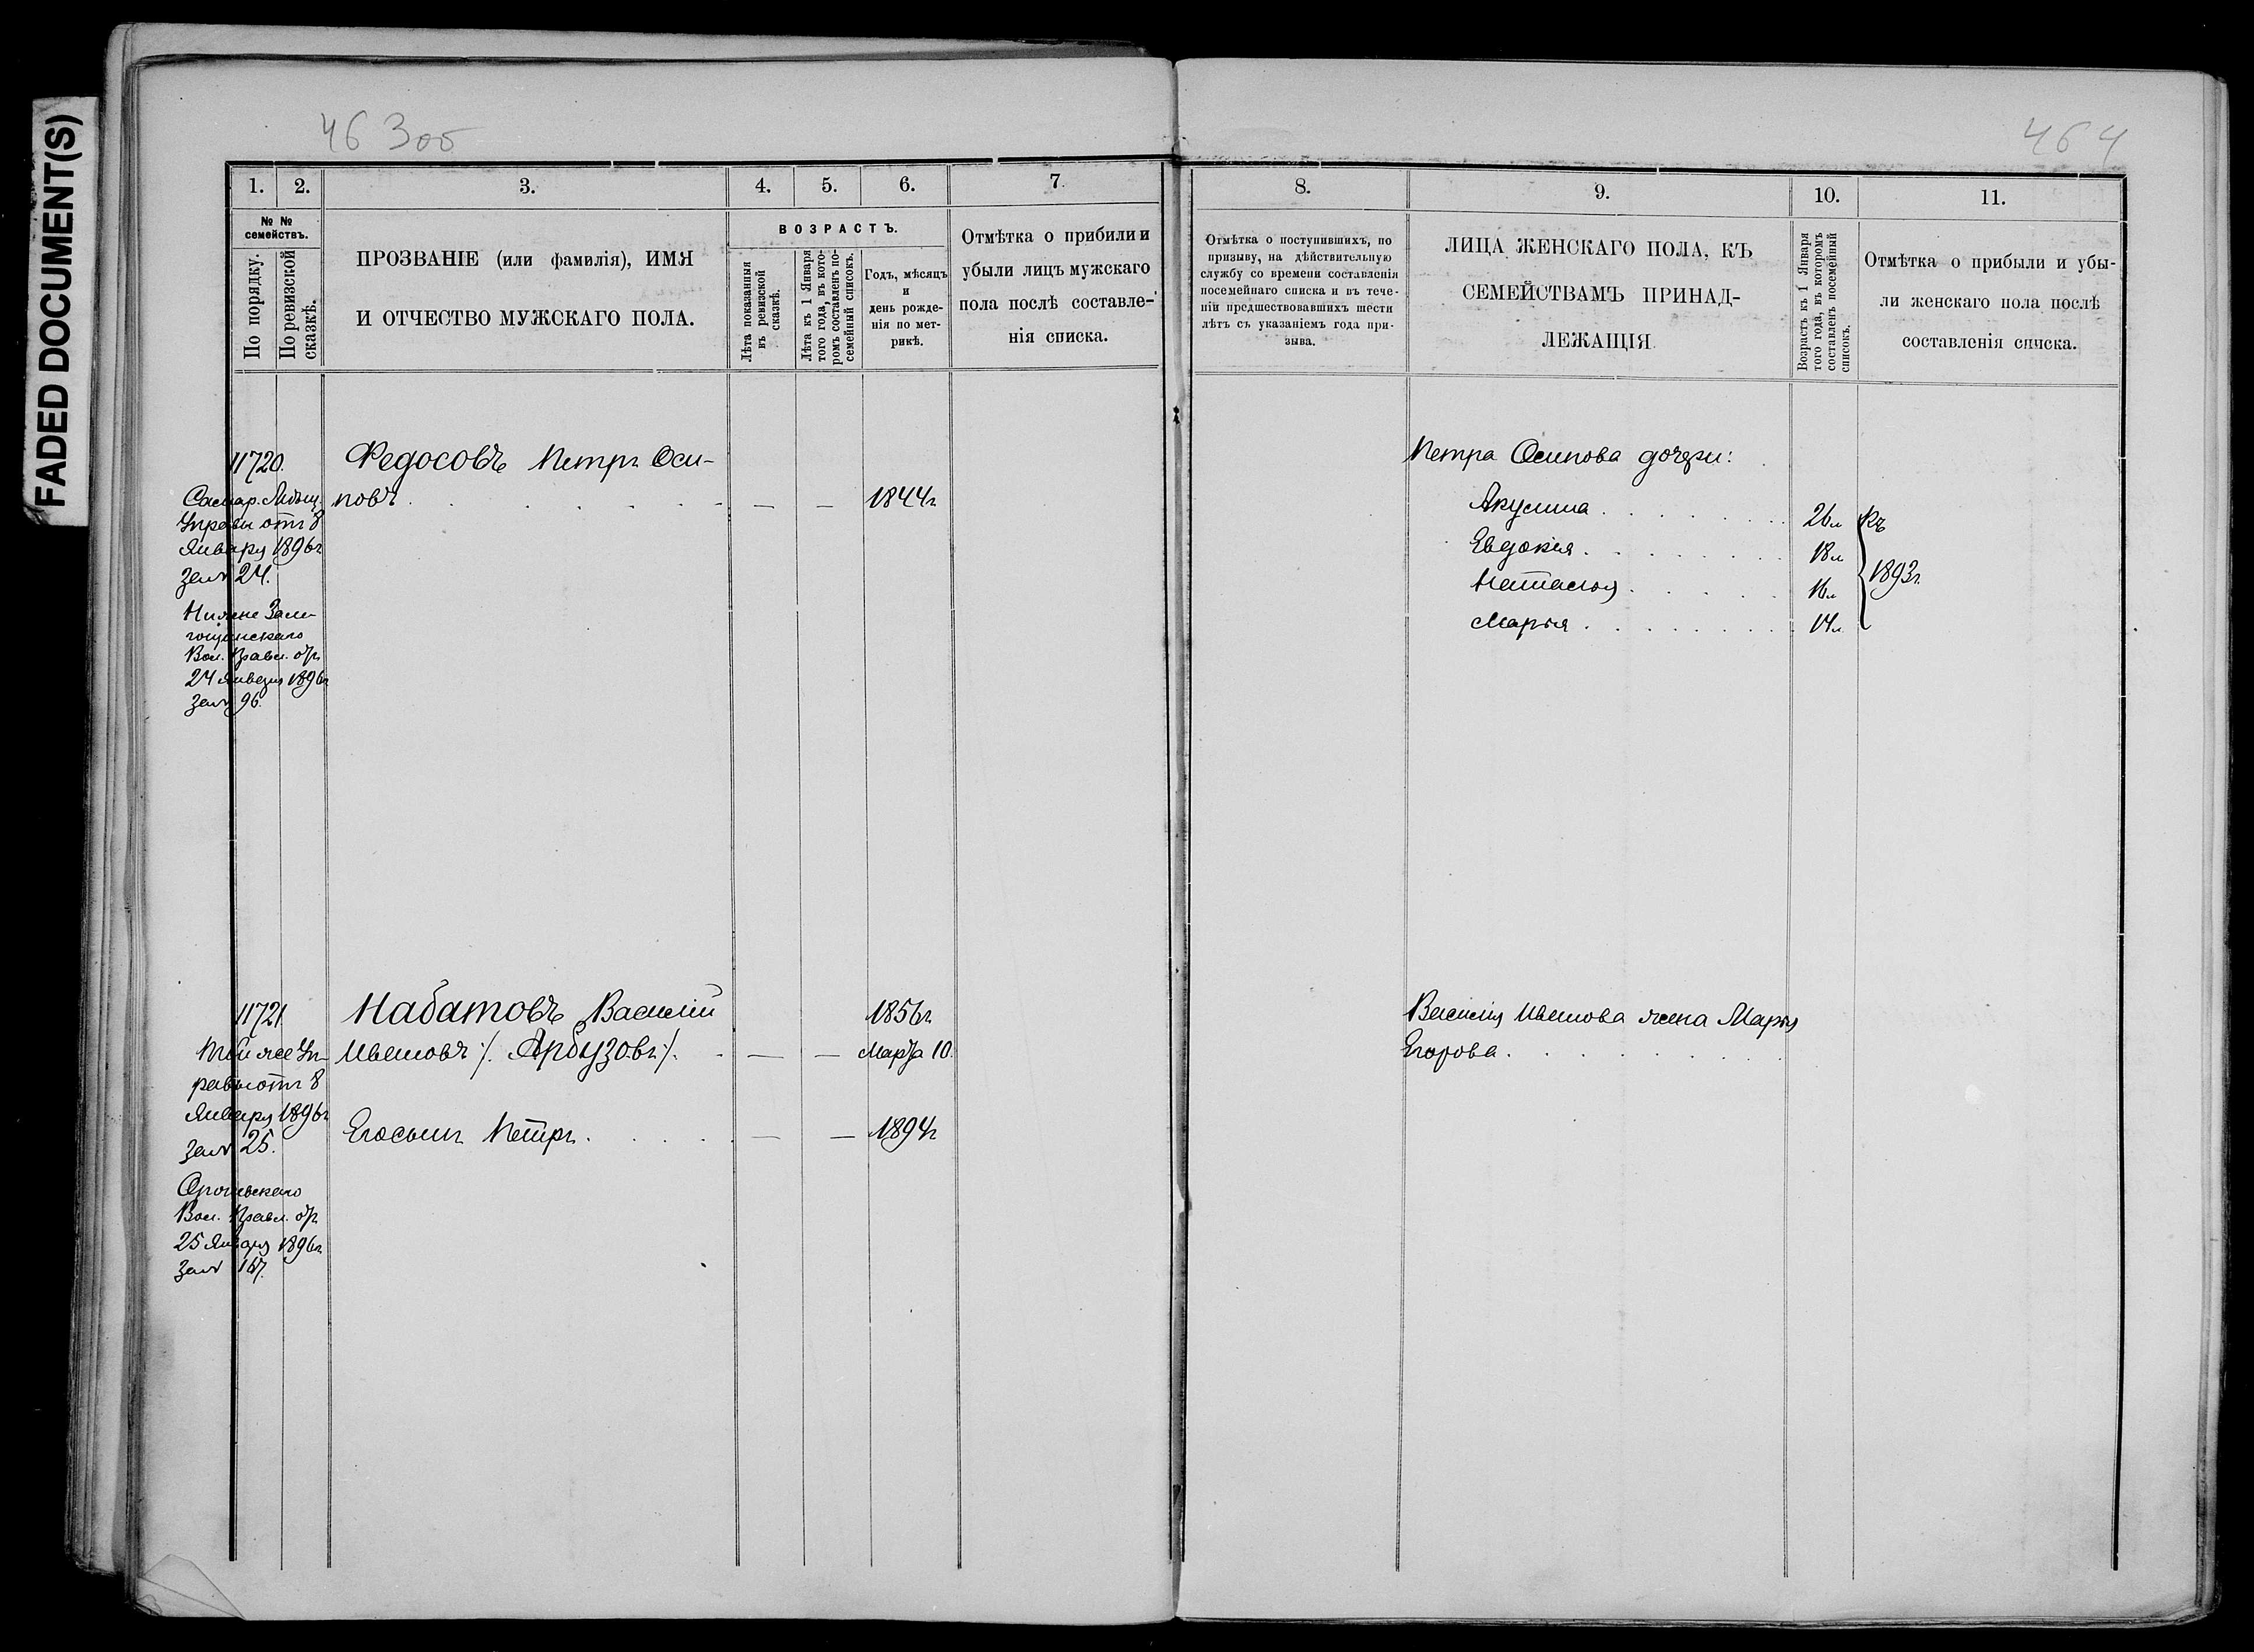 FADED DOCUMENT(S)
463об
464
1. 2. 3. 4. 5. 6. 7.
№ №
семействъ.
По порядку.
По ревизской
сказкѣ.
ПРОЗВАНІЕ (или фамилія), ИМЯ
И ОТЧЕСТВО МУЖСКАГО ПОЛА.
ВОЗРАСТЪ.
Лѣта показанныя
въ ревизской
сказкѣ.
Лѣта къ 1 Января
того года, въ кото-
ромъ составленъ по-
семейный списокъ.
Годъ, мѣсяцъ
и
день рожде-
нія по мет-
рикѣ.
Отмѣтка о прибыли и
убыли лицъ мужскаго
пола послѣ составле-
нія списка.
11720. Федосовъ Петръ Оси-
Самар. Мѣщ. повъ 1844г
Управы отъ 8
Января 1896г
за № 24.
Вол. Правл. отъ
24 Января 1896г
за № 96.
11721. Набатовъ Василій 1856г
Той же Уп- Ивановъ /. Арбузовъ /. Марта 10.
равы отъ 8
Января 1896г
за № 25. Его сынъ Петръ 1894г
Вол. Правл. отъ
25 Января 1896г
за № 167.
8. 9. 10. 11.
Отмѣтка о поступившихъ, по
призыву, на дѣйствительную
службу со времени составленія
посемейнаго списка и въ тече-
ніи предшествовавшихъ шести
лѣтъ съ указаніемъ года при-
зыва.
ЛИЦА ЖЕНСКАГО ПОЛА, КЪ
СЕМЕЙСТВАМЪ ПРИНАД-
ЛЕЖАЩІЯ
Возрастъ къ 1 Января
того года, въ которомъ
составленъ посемейный
списокъ.
Отмѣтка о прибыли и убы-
ли женскаго пола послѣ
составленія списка.
Петра Осипова дочери:
Акулина 26л къ
Евдокія 18л
Наталья 16л 1893г.
Марья 14л
Василія Иванова жена Марья
Егорова